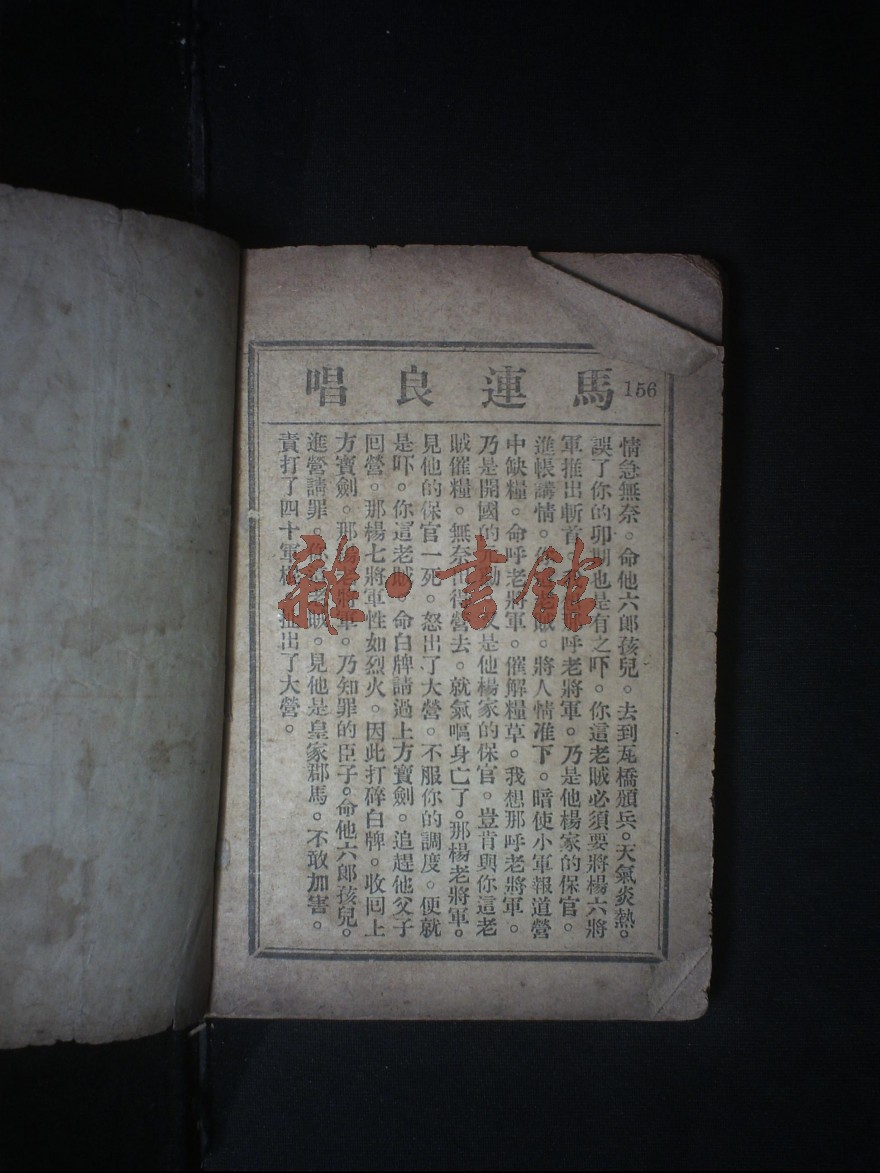 馬連良唱
156
情急無奈。命他六郎孩兒。去到瓦橋頒兵。天氣炎熱。
誤了你的卯期也是有之吓。你這老賊必須要將楊六將
軍推出斬首。呼老將軍。乃是他楊家的保官。
進帳講情。將人情准下。暗使小軍報道營
中缺糧。命呼老將軍。催解糧草。我想那呼老將軍。
乃是開國的又是他楊家的保官。豈肯與你這老
賊催糧。無奈出得營去。就氣嘔身亡了。那楊老將軍。
見他的保官一死。怒出了大營。不服你的調度。便就
是吓。你這老賊。命白牌請過上方寶劍。追趕他父子
回營。那楊七將軍性如烈火。因此打碎白牌。收回上
方寶劍。那將軍。乃知罪的臣子。命他六郎孩兒。
進營請罪。你這老賊。見他是皇家郡馬。不敢加害。
責打了四十軍棍。扯出了大營。
雜·書館